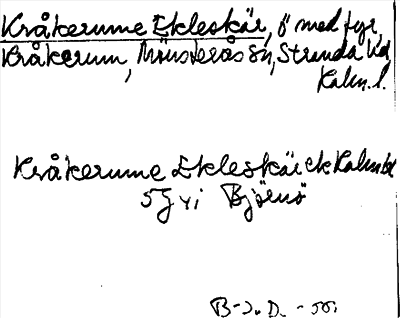 Kråkerume Ekleskär, ö med fyr,
Kråkerum, Mönsterås Sn, Stranda hd,
Kalm. l.
Kråkerume Ekleskär ek Kalmar
5J vi Björnö
B-2. D. - 55.